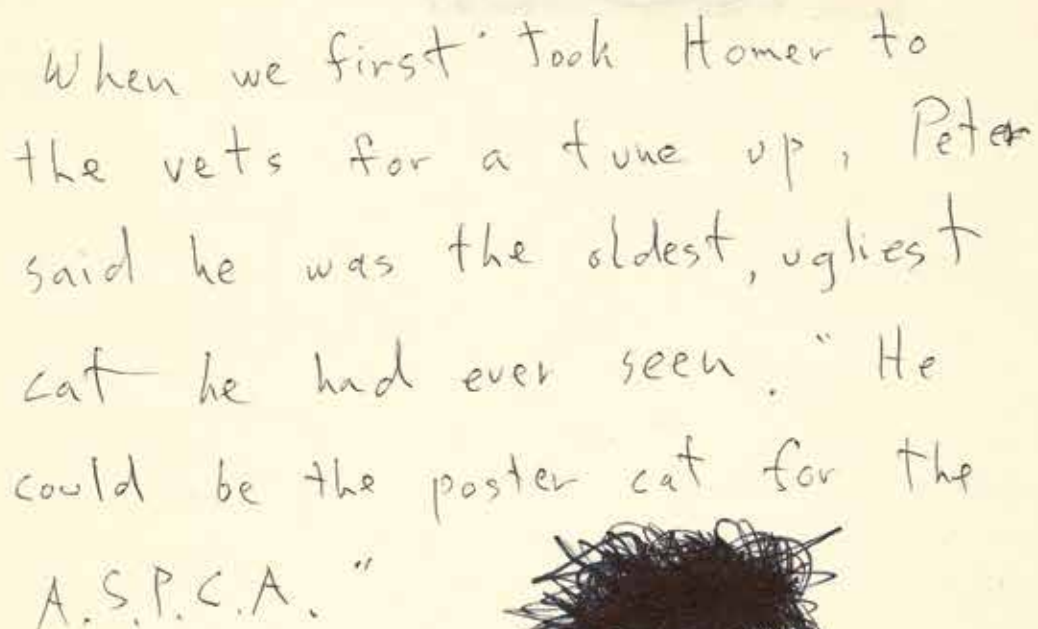 When we first took Homer to
the vets for a tune up, Peter
said he was the oldest, ugliest
cat he had ever seen. "He
could be the poster cat for the
A.S.P.C.A."